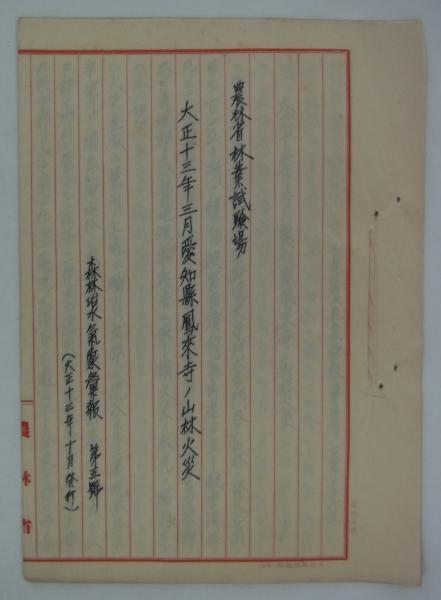 農林省林業試験場
大正十三年三月愛知縣鳳來寺ノ山林火災
森林測候所氣象彙報 第五號
（大正十三年十月發行）
農林省